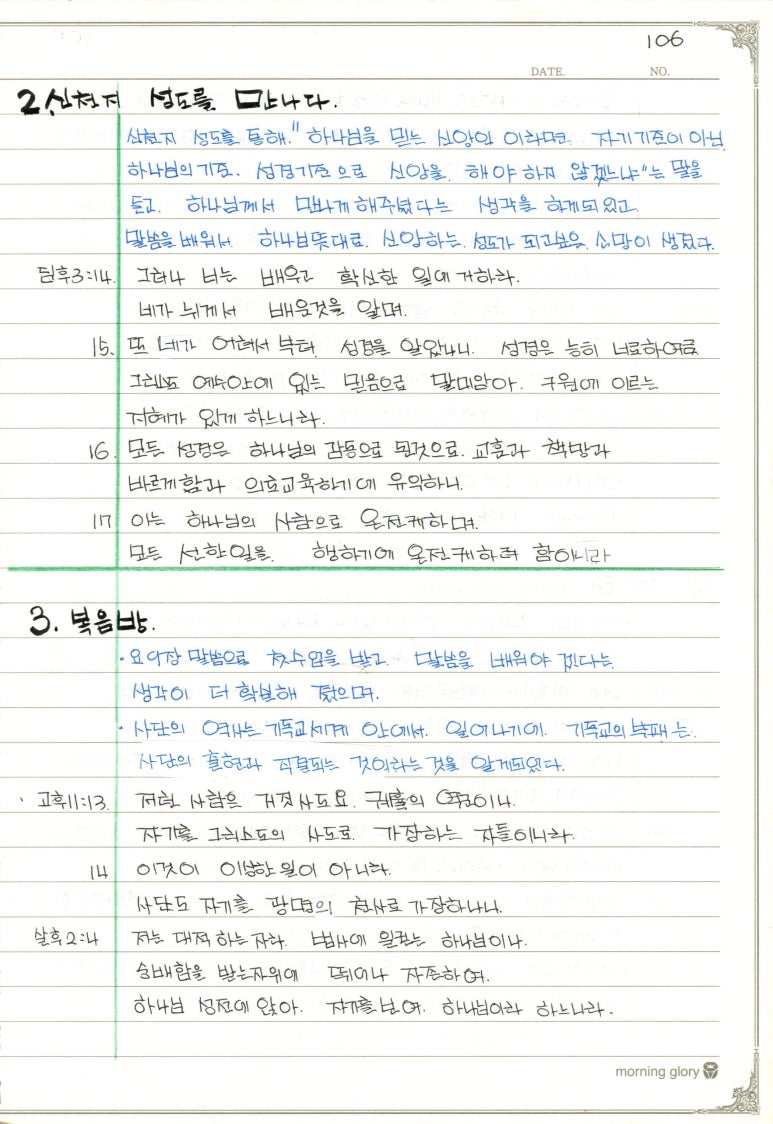 106
DATE. NO.
2. 신천지 성도를 만나다.
신천지 성도를 통해. "하나님을 믿는 신앙인 이라면. 자기기준이 아닌
하나님의 기준. 성경기준으로 신앙을 해야 하지 않겠느냐"는 말을
듣고. 하나님께서 만나게 해주셨다는 생각을 하게되었고.
말씀을 배워서 하나님뜻대로. 신앙하는. 성도가 되고싶은. 소망이 생겼다.
딤후3:14. 그러나 너는 배우고 확신한 일에 거하라.
네가 뉘게서 배운것을 알며.
15. 또 네가 어려서 부터 성경을 알았나니. 성경은 능히 너로하여금
그리스도 예수안에 있는 믿음으로 말미암아. 구원에 이르는
지혜가 있게 하느니라.
16. 모든 성경은 하나님의 감동으로 된것으로. 교훈과 책망과
바르게함과 의로교육하기에 유익하니.
17 이는 하나님의 사람으로 온전케하며.
모든 선한일을. 행하기에 온전케하려 함이니라
3. 복음방.
· 요의장 말씀으로 첫수업을 받고. 말씀을 배워야 겠다는
생각이 더 확실해 졌으며.
· 사단의 역사는 기독교세계 안에서. 일어나기에. 기독교의 부패는.
사단의 출현과 직결되는 것이라는것을 알게되었다.
· 고후11:13. 저런 사람은 거짓사도요. 궤휼의 역군이니.
자기를 그리스도의 사도로. 가장하는 자들이니라.
14 이것이 이상한 일이 아니라.
사단도 자기를 광명의 천사로 가장하나니.
살후2:4 저는 대적하는자라. 범사에 일컫는 하나님이나.
숭배함을 받는자위에 뛰어나 자존하여.
하나님 성전에 앉아. 자기를보여. 하나님이라 하느니라.
morning glory